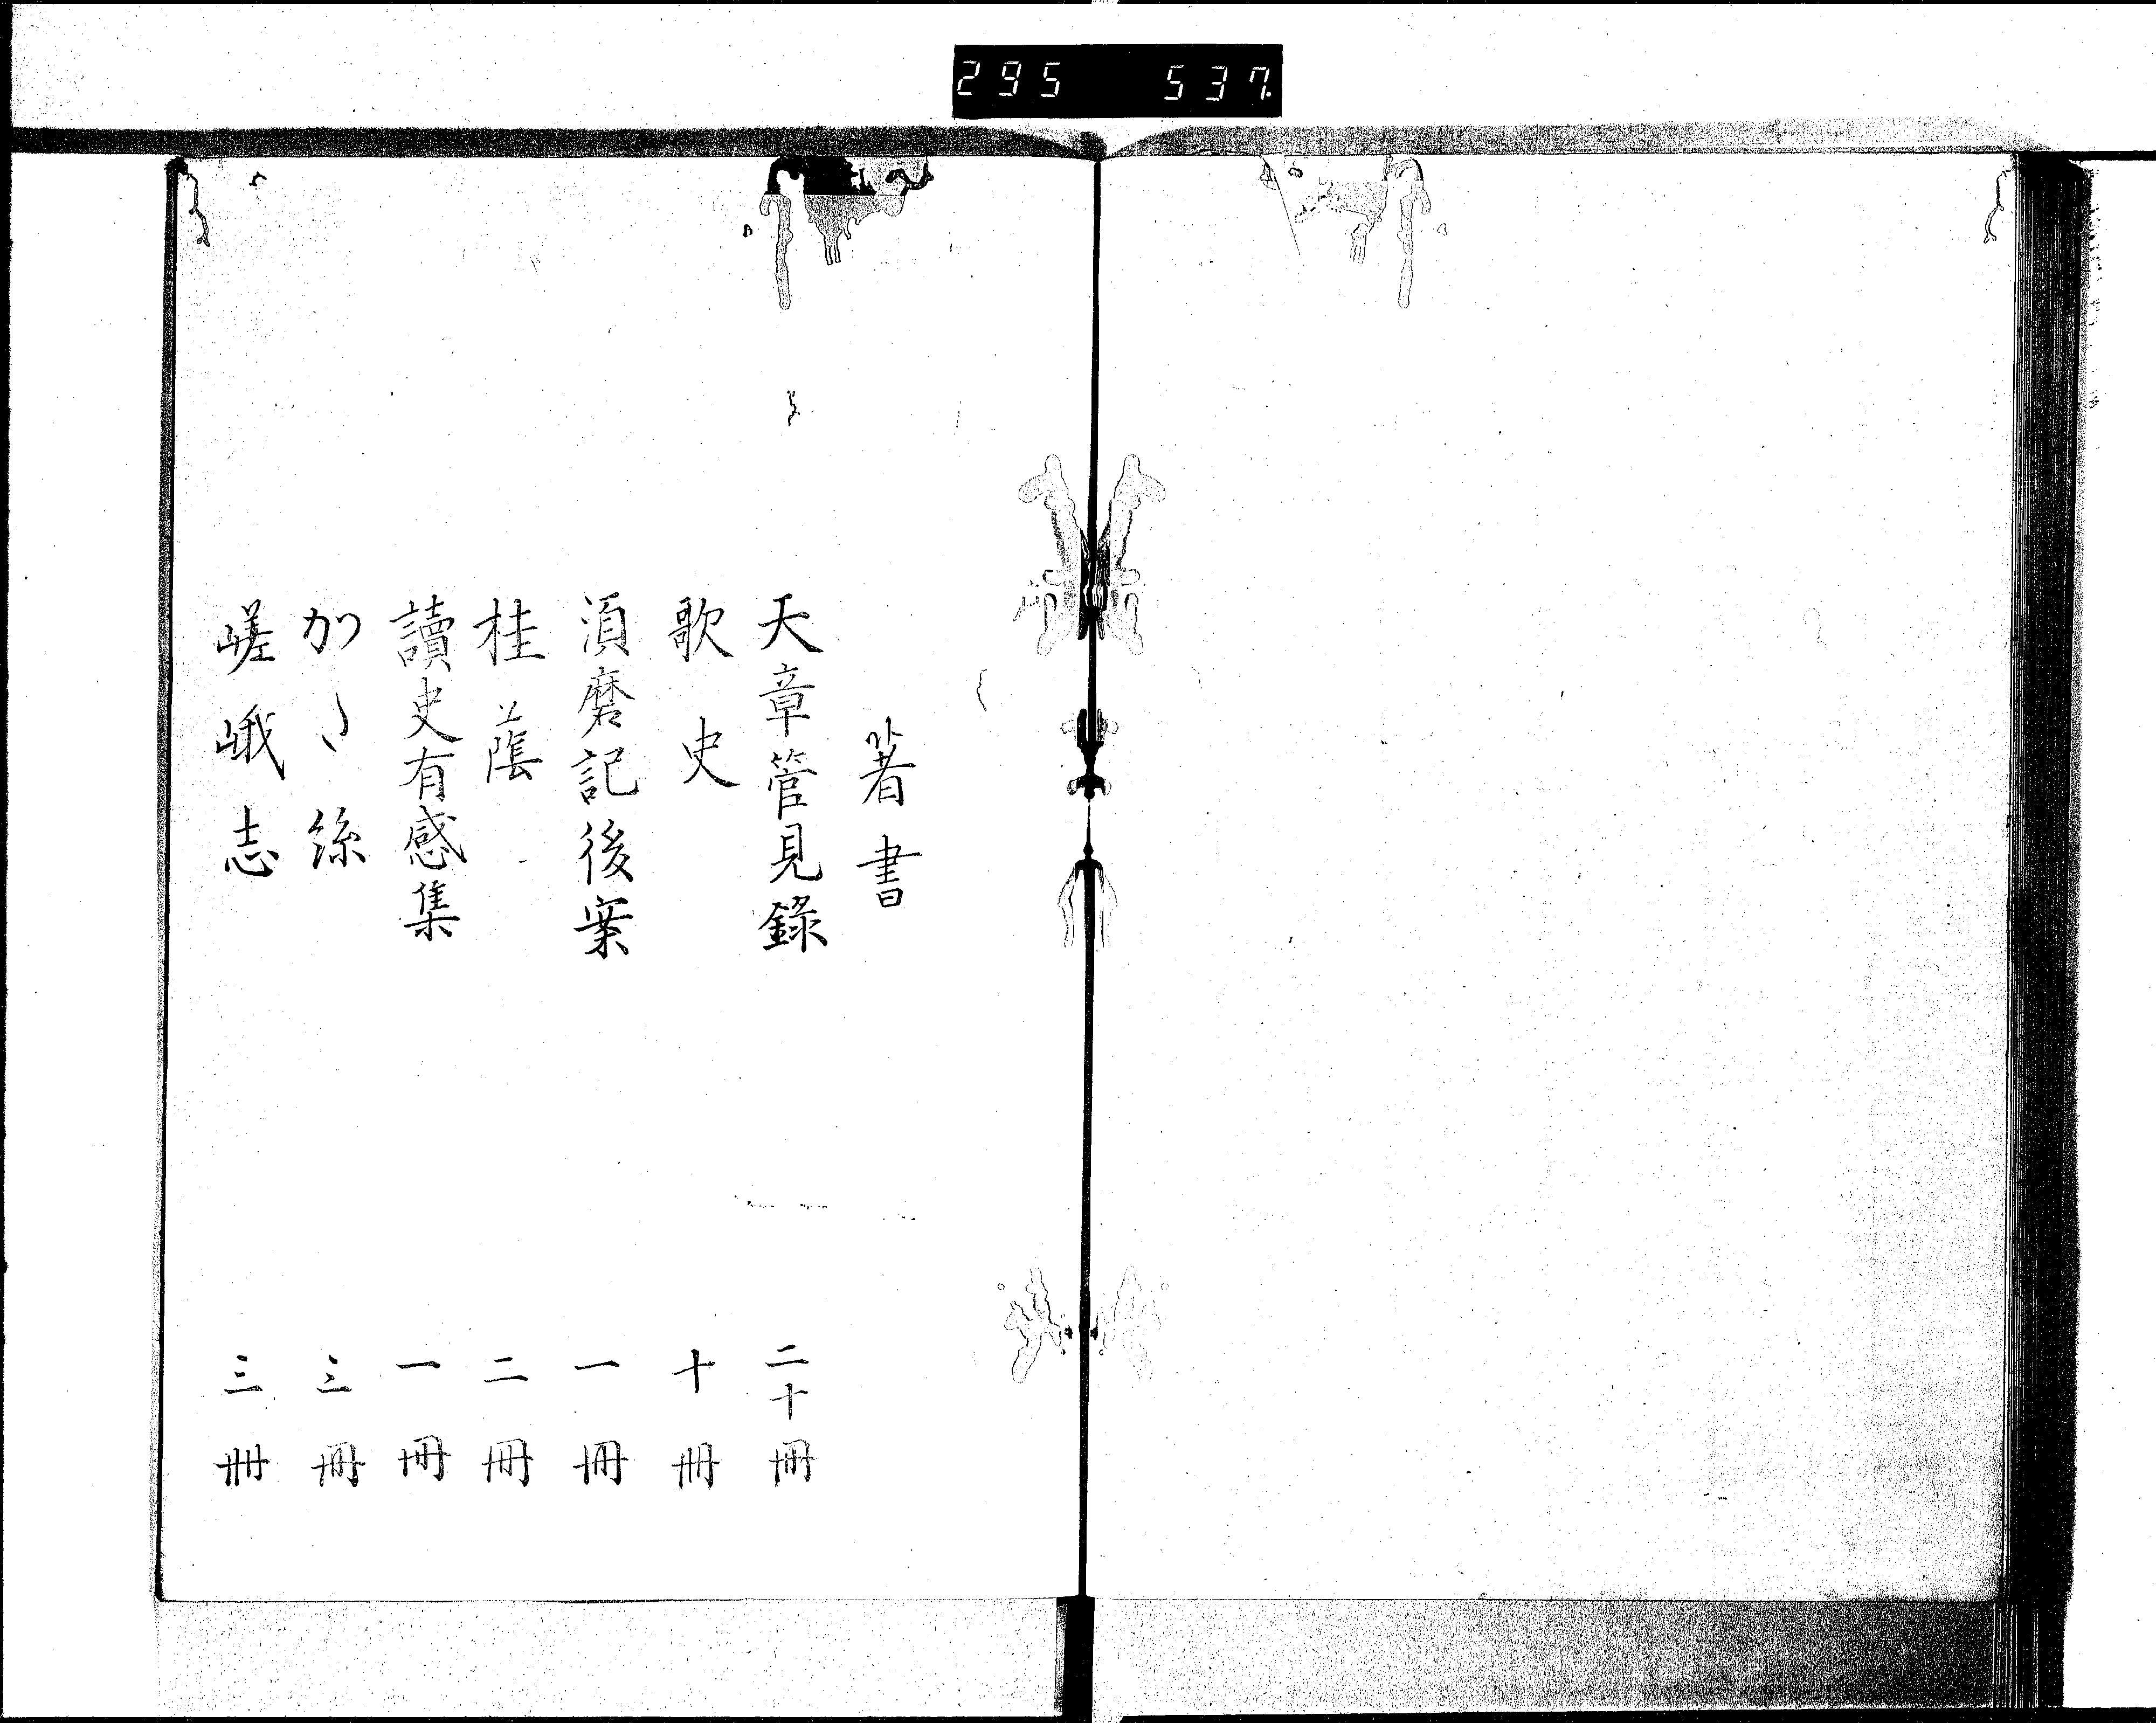 295 537
著書
天章管見錄 二十冊
歌史 十冊
須磨記後案 一冊
桂蔭 二冊
讀史有感集 一冊
かゝ絲 三冊
嵯峨志 三冊